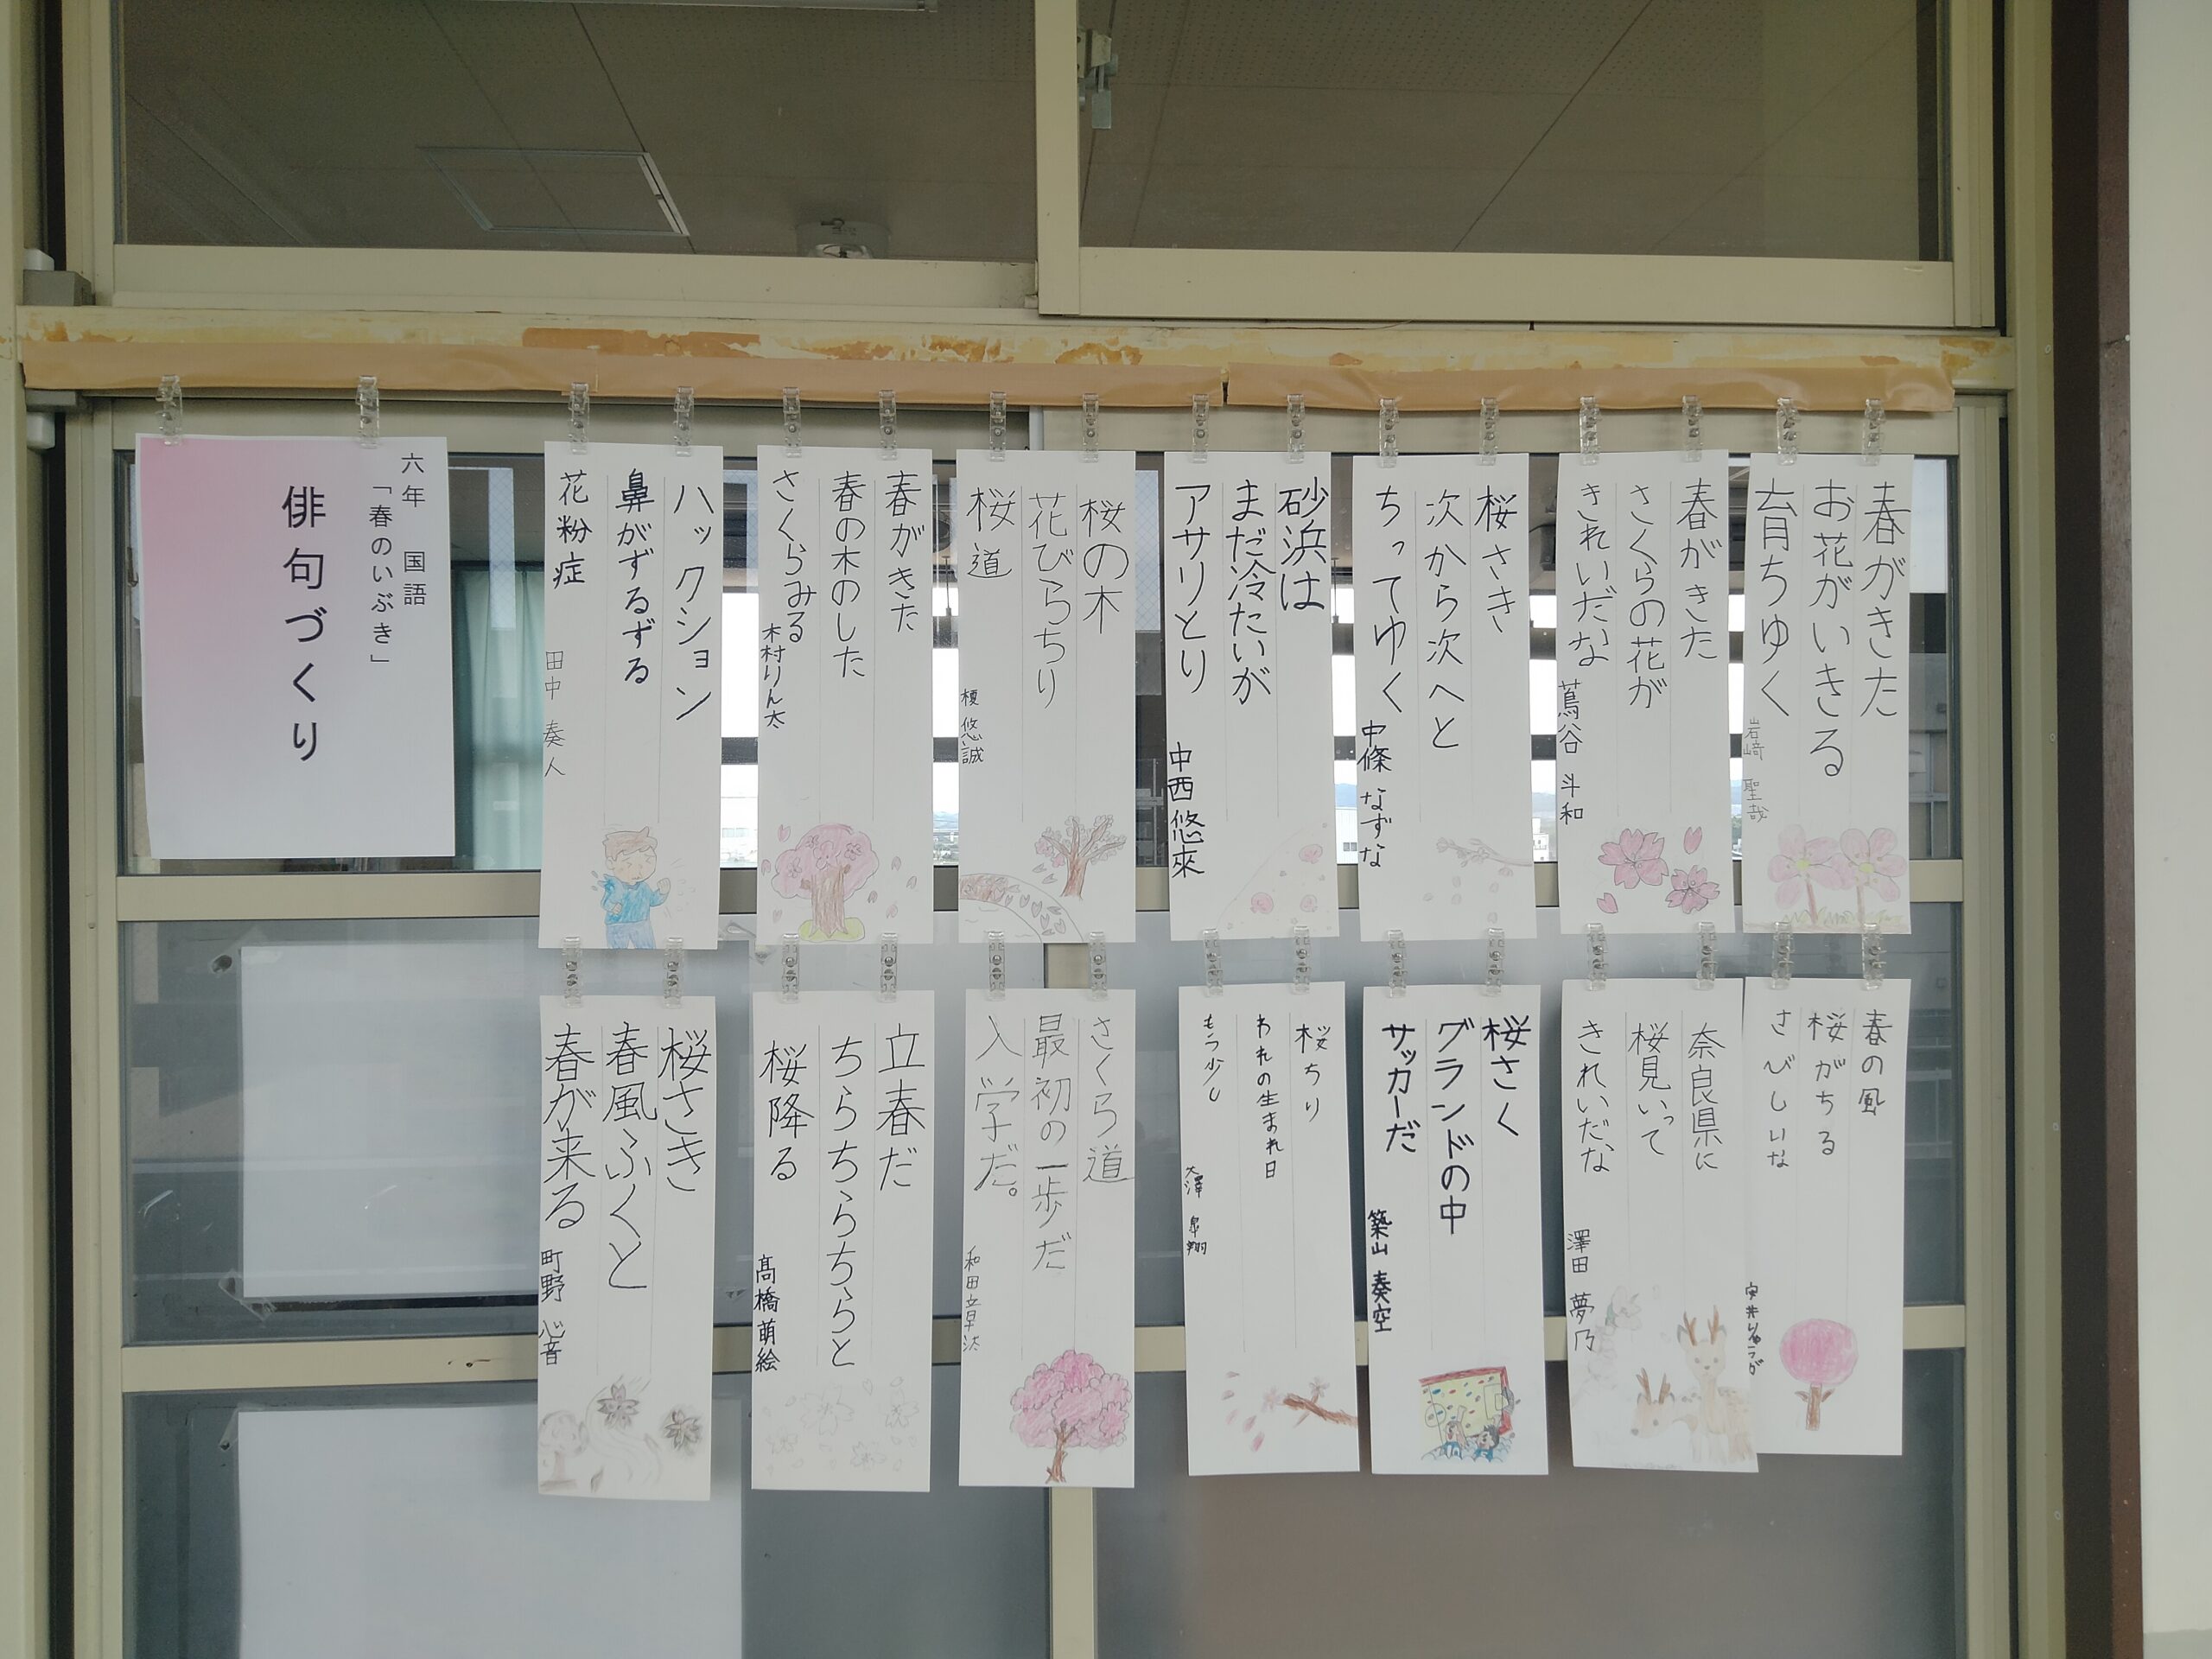 六年 国語
「春のいぶき」
俳句づくり
春がきた
お花がいきる
育ちゆく
岩﨑 聖哉
春がきた
さくらの花が
きれいだな
蔦谷 斗和
桜さき
次から次へと
ちってゆく
中條 なずな
砂浜は
まだ冷たいが
アサリとり
中西 悠來
桜の木
花びらちり
桜道
榎 悠誠
春がきた
春の木のした
さくらみる
木村りん太
ハックション
鼻がずるずる
花粉症
田中 奏人
春の風
桜がちる
さびしいな
奈良県に
桜見いって
きれいだな
澤田 夢乃
桜さく
グランドの中
サッカーだ
築山 奏空
桜ちり
われの生まれ日
もう少し
大澤
さくら道
最初の一歩だ
入学だ。
和田
立春だ
ちらちらちらと
桜降る
髙橋 萌絵
桜さき
春風ふくと
春が来る
町野 心音